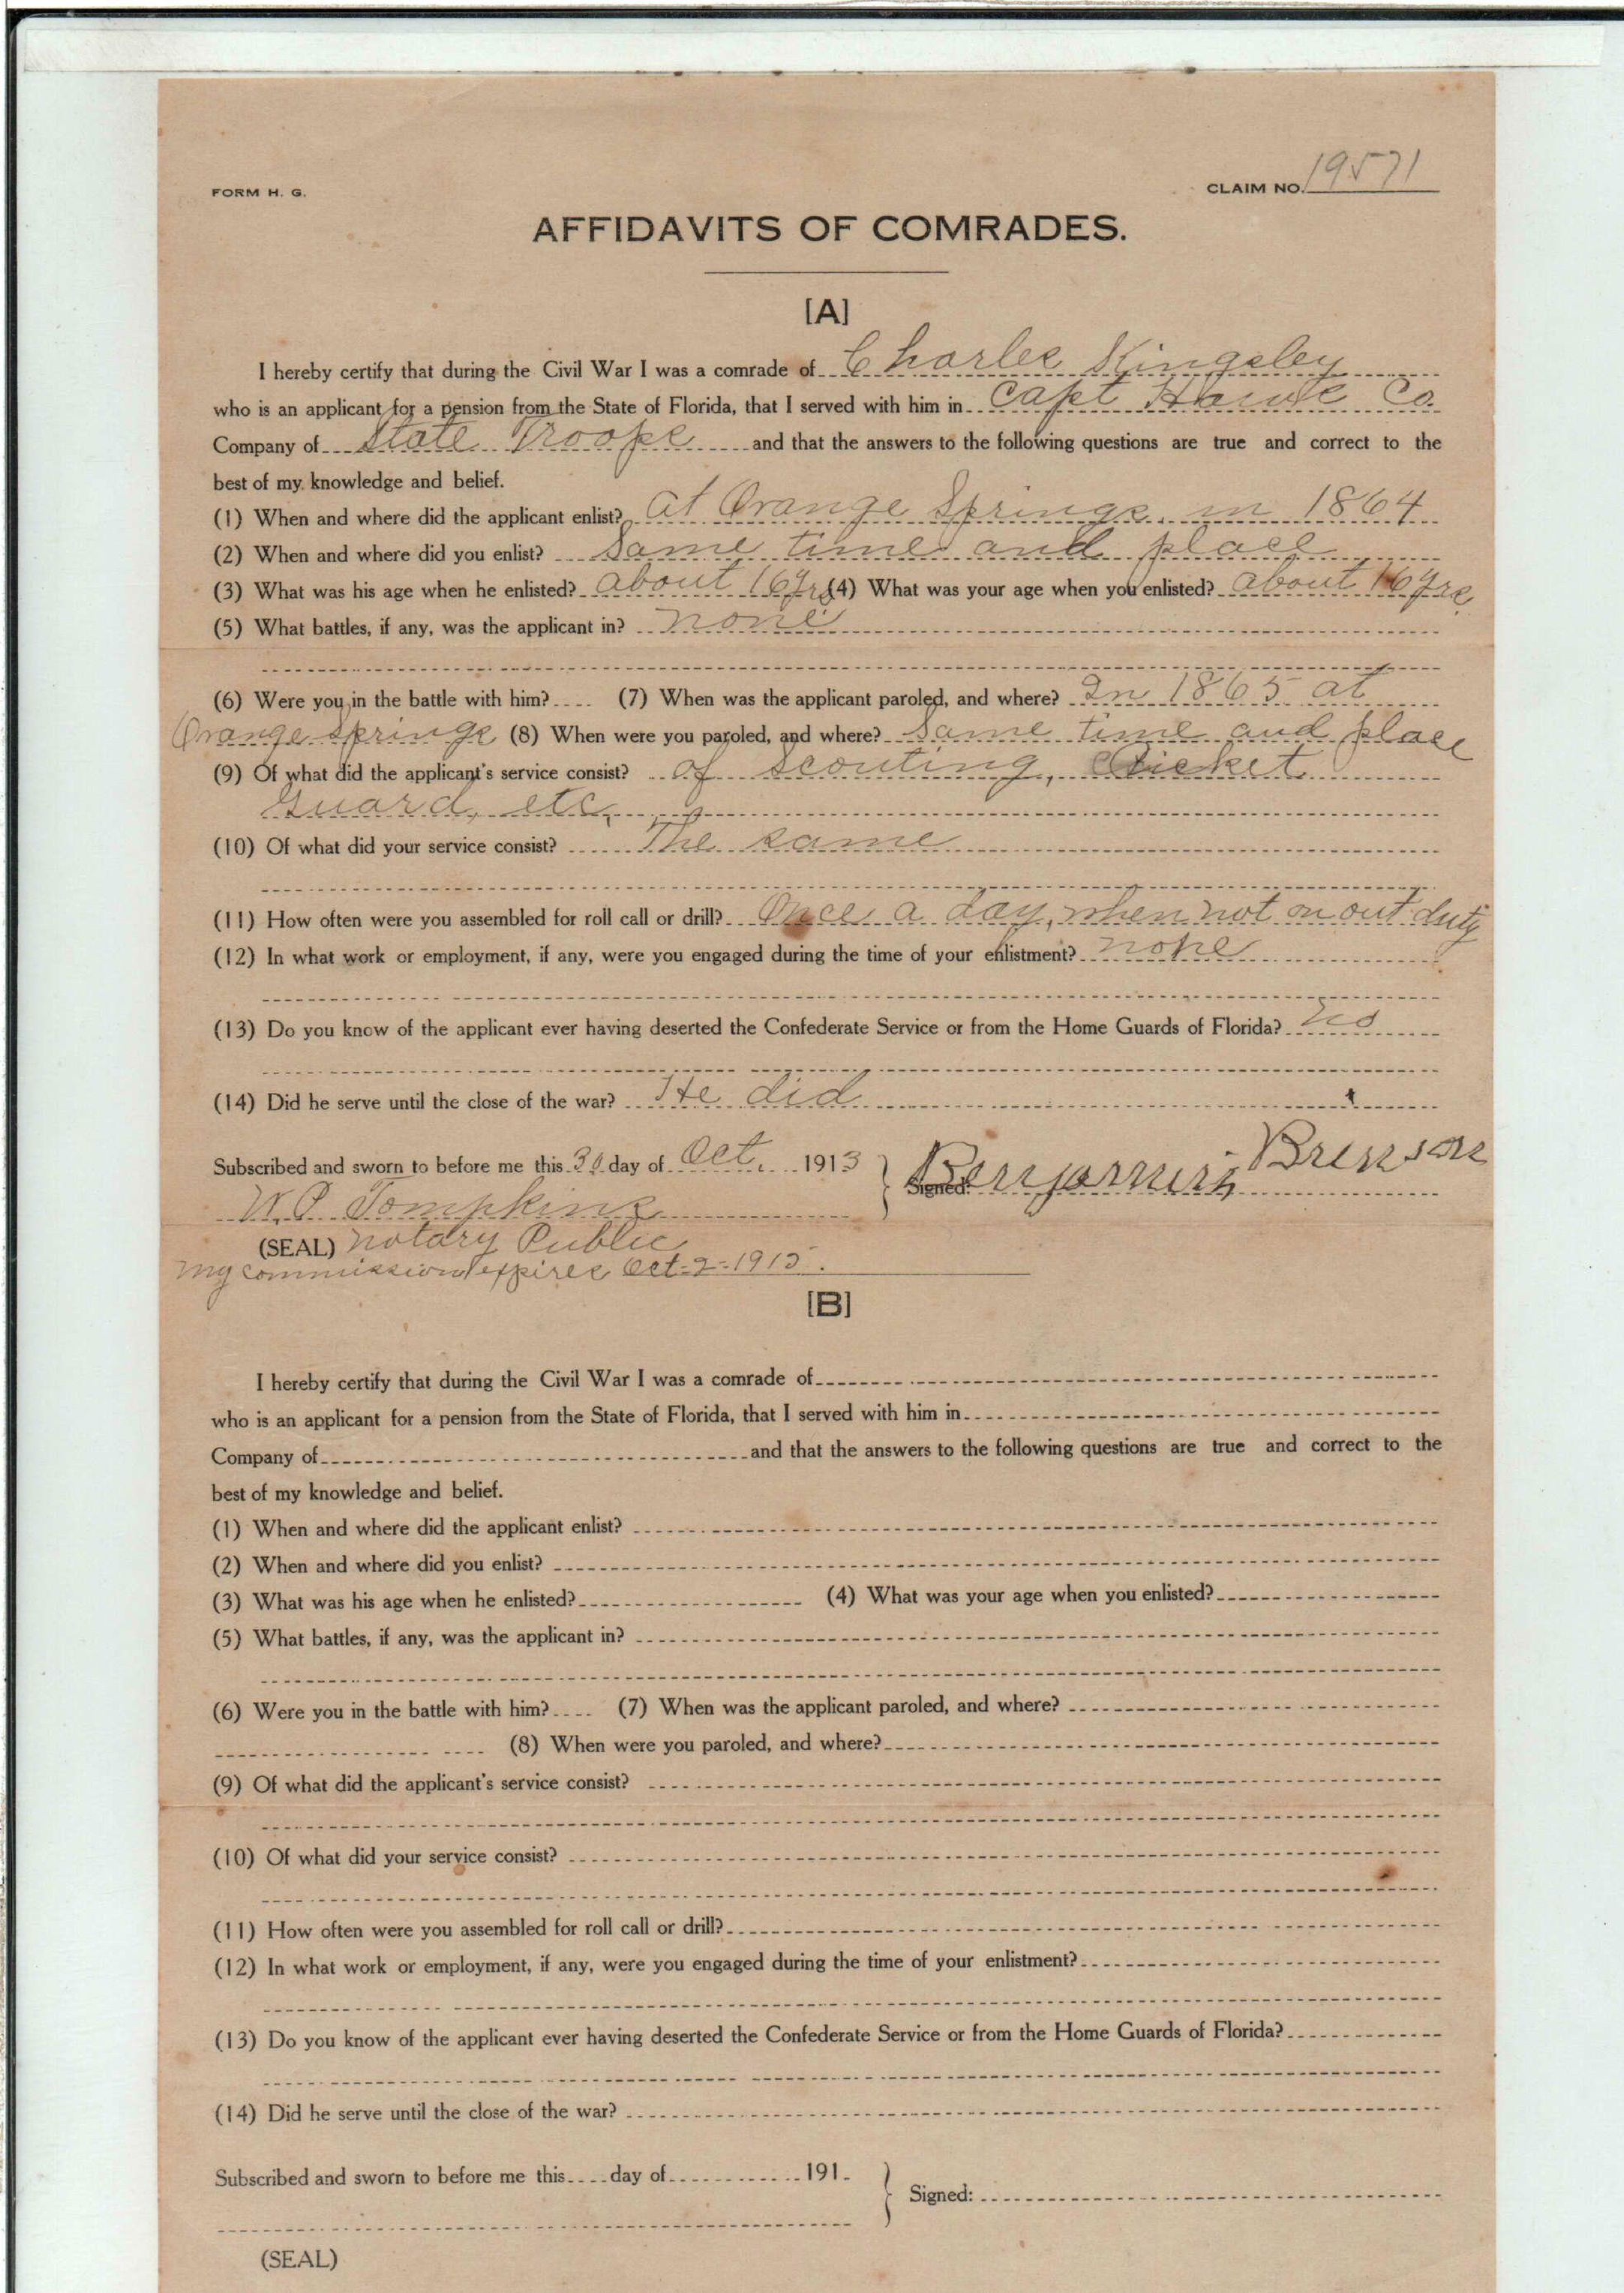 FORM H. G.
CLAIM NO. 19571
AFFIDAVITS OF COMRADES.
[A]
I hereby certify that during the Civil War I was a comrade of Charles Kingsley
who is an applicant for a pension from the State of Florida, that I served with him in Capt Co.
Company of State Troops and that the answers to the following questions are true and correct to the
best of my knowledge and belief.
(1) When and where did the applicant enlist? at Orange Springs, in 1864
(2) When and where did you enlist? Same time and place
(3) What was his age when he enlisted? about 16 yrs (4) What was your age when you enlisted? about 16 yrs
(5) What battles, if any, was the applicant in? none
(6) Were you in the battle with him? (7) When was the applicant paroled, and where? In 1865 at
Orange Springs (8) When were you paroled, and where? Same time and place
(9) Of what did the applicant's service consist? of scouting, Picket
Guard, etc,
(10) Of what did your service consist? The same
(11) How often were you assembled for roll call or drill? Once a day, when not on out duty
(12) In what work or employment, if any, were you engaged during the time of your enlistment? none
(13) Do you know of the applicant ever having deserted the Confederate Service or from the Home Guards of Florida? No
(14) Did he serve until the close of the war? He did
Subscribed and sworn to before me this 30 day of Oct. 1913 Signed: Benjamin Brinson
W. P. Tompkins
(SEAL) Notary Public
My commission expires Oct-2-1915.
[B]
I hereby certify that during the Civil War I was a comrade of
who is an applicant for a pension from the State of Florida, that I served with him in
Company of and that the answers to the following questions are true and correct to the
best of my knowledge and belief.
(1) When and where did the applicant enlist?
(2) When and where did you enlist?
(3) What was his age when he enlisted? (4) What was your age when you enlisted?
(5) What battles, if any, was the applicant in?
(6) Were you in the battle with him? (7) When was the applicant paroled, and where?
(8) When were you paroled, and where?
(9) Of what did the applicant's service consist?
(10) Of what did your service consist?
(11) How often were you assembled for roll call or drill?
(12) In what work or employment, if any, were you engaged during the time of your enlistment?
(13) Do you know of the applicant ever having deserted the Confederate Service or from the Home Guards of Florida?
(14) Did he serve until the close of the war?
Subscribed and sworn to before me this day of 191 Signed:
(SEAL)